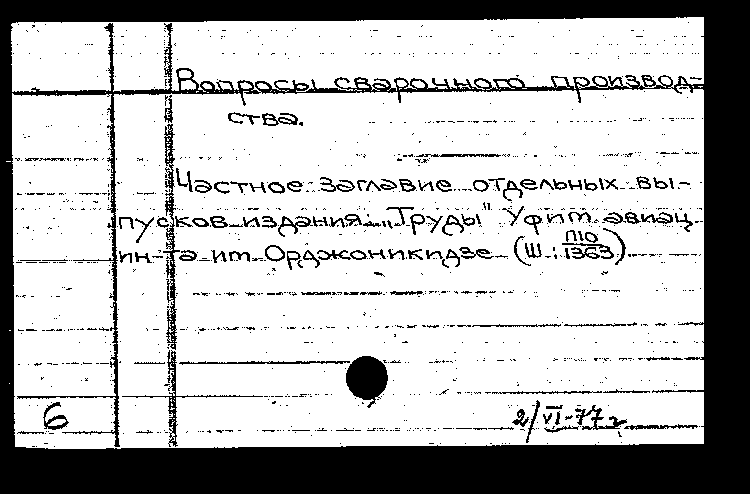 Вопросы сварочного производ-
ства.
Частное заглавие отдельных вы-
пусков издания: „Труды" Уфим. авиац.
ин-та им. Орджоникидзе (Ш: П10/1363).
6
2/VI-77 г